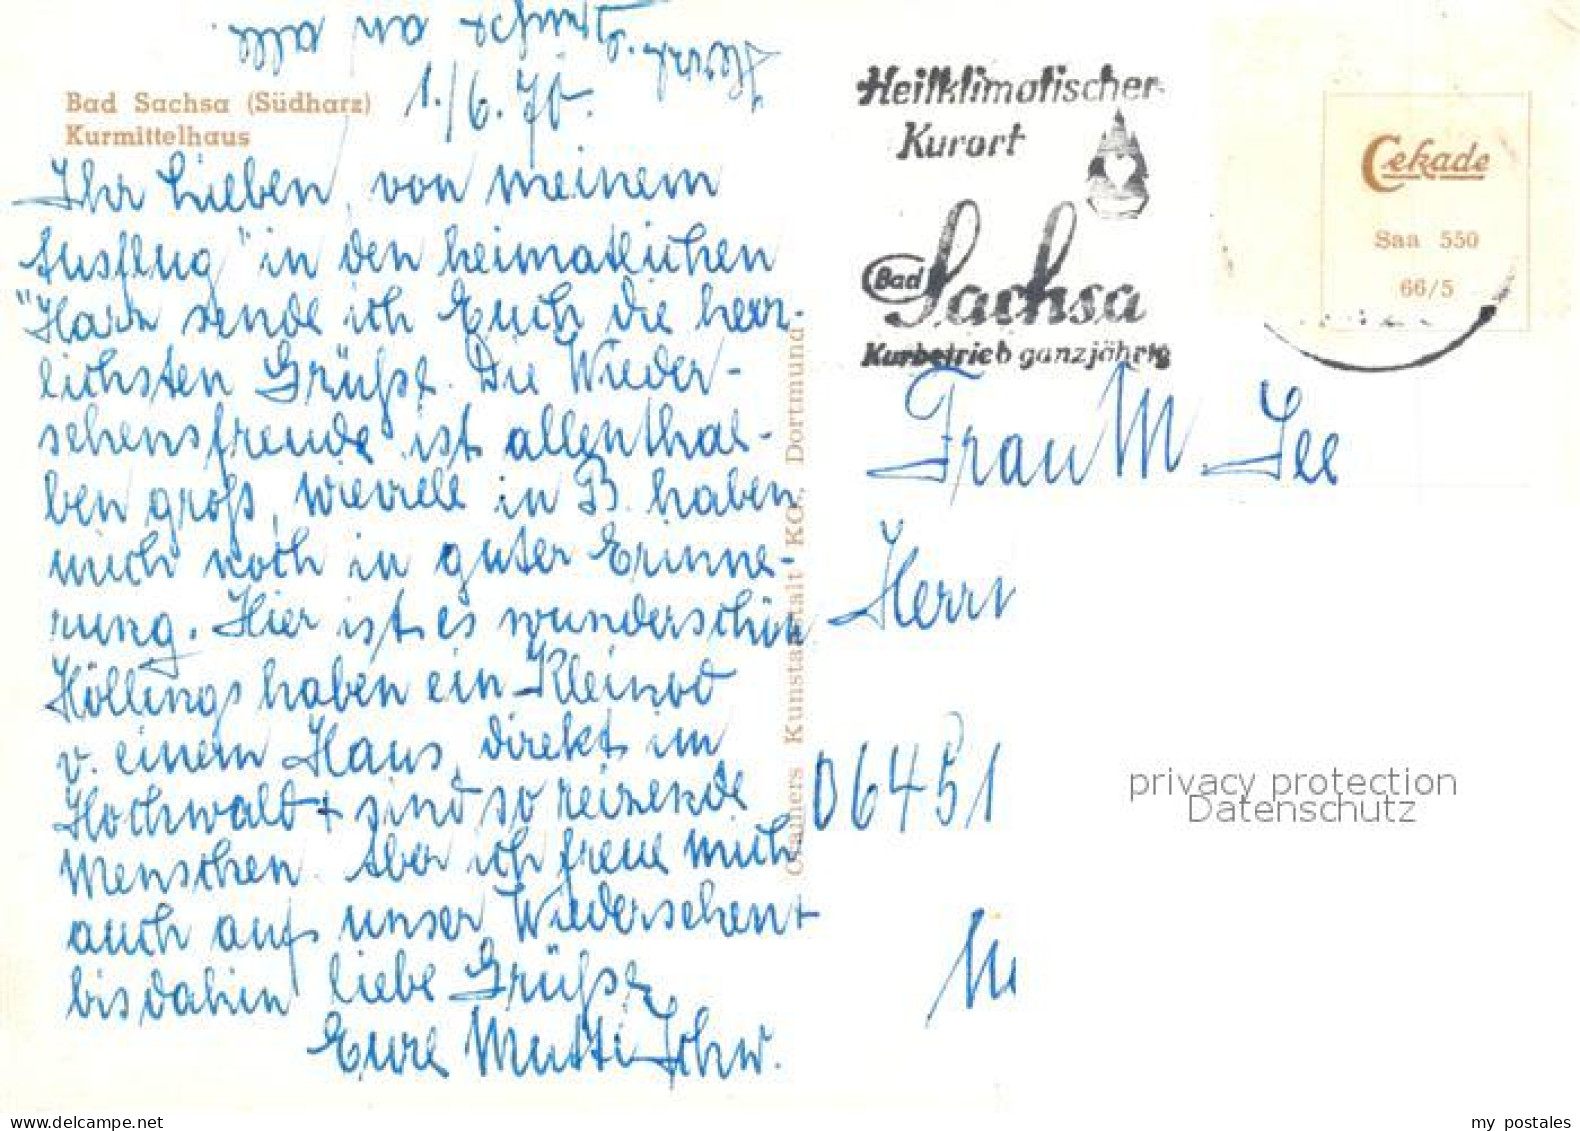 Herzl. Grüße an alle.
1./6. 70.
Bad Sachsa (Südharz)
Kurmittelhaus
Ihr Lieben, von meinem
Ausflug" in den heimatlichen
"Harz sende ich Euch die herr-
lichsten Grüße. Die Wieder-
sehensfreude ist allenthal-
ben groß, wieviele in B. haben
mich noch in guter Erinne-
rung. Hier ist es wunderschön
Höllings haben ein Kleinod
v. einem Haus, direkt im
Hochwald + sind so reizende
Menschen. Aber ich freue mich
auch auf unser Wiedersehen +
bis dahin liebe Grüße
Eure Mutti Schw.
Cramers Kunstanstalt KG., Dortmund
Heilklimatischer
Kurort
Bad Sachsa
Kurbetrieb ganzjährig
Cekade
Saa 550
66/5
Frau M. See
Herrn
06451
privacy protection
Datenschutz
my postales
www.delcampe.net